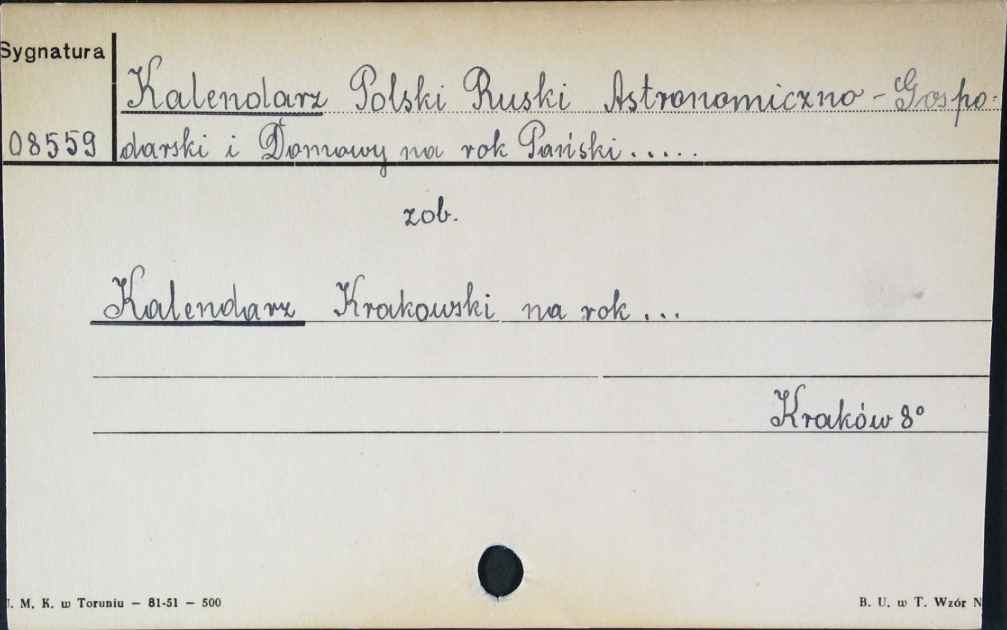 Sygnatura
Kalendarz Polski Ruski Astronomiczno - Gospo-
08559 darski i Domowy na rok Pański.....
zob.
Kalendarz Krakowski na rok ...
Kraków 8°
. M. K. w Toruniu — 81-51 — 500
B. U. w T. Wzór N